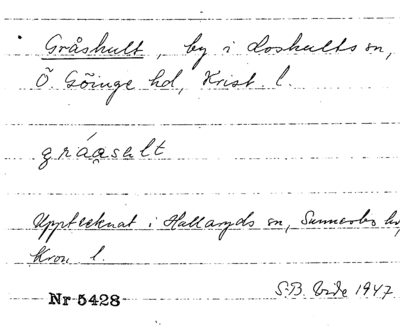 Gråshult, by i Loshults sn,
Ö. Göinge hd, Krist. l.
gráasalt
Upptecknat i Hallaryds sn, Sunnerbo hd,
Kron. l.
S.B. 1947
Nr 5428